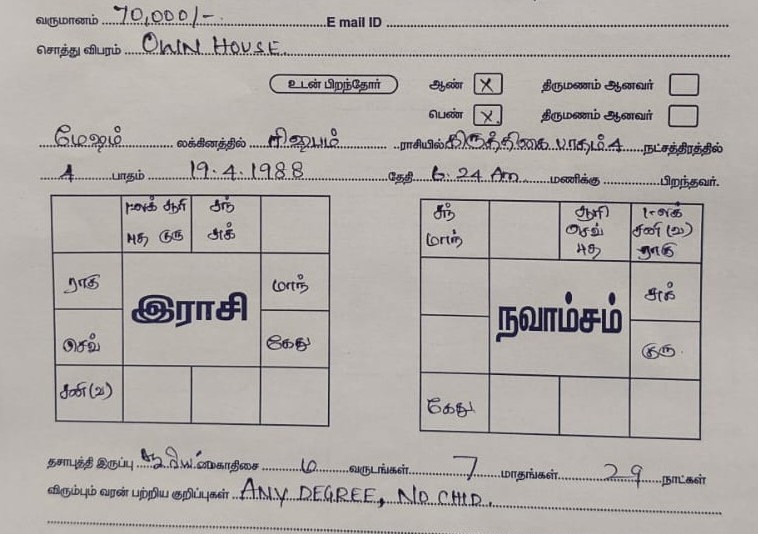 வருமானம் 70,000/- E mail ID
சொத்து விபரம் OWN HOUSE
உடன் பிறந்தோர் ஆண் X திருமணம் ஆனவர்
பெண் X திருமணம் ஆனவர்
மேஷம் லக்கினத்தில் ரிஷபம் ராசியில் கிருத்திகை பாதம் 4 நட்சத்திரத்தில்
4 பாதம் 19.4.1988 தேதி 6.24 Am மணிக்கு பிறந்தவர்.
லக் சூரி சந்
புத குரு சுக்
ராகு மாந்
இராசி
செவ் கேது
சனி (வ)
சந் சூரி லக்
மாந் செவ் சனி (வ)
புத ராகு
சுக்
நவாம்சம்
குரு
கேது
தசாபுத்தி இருப்பு மகாதிசை வருடங்கள் 7 மாதங்கள் 29 நாட்கள்
விரும்பும் வரன் பற்றிய குறிப்புகள் ANY DEGREE, NO CHID.